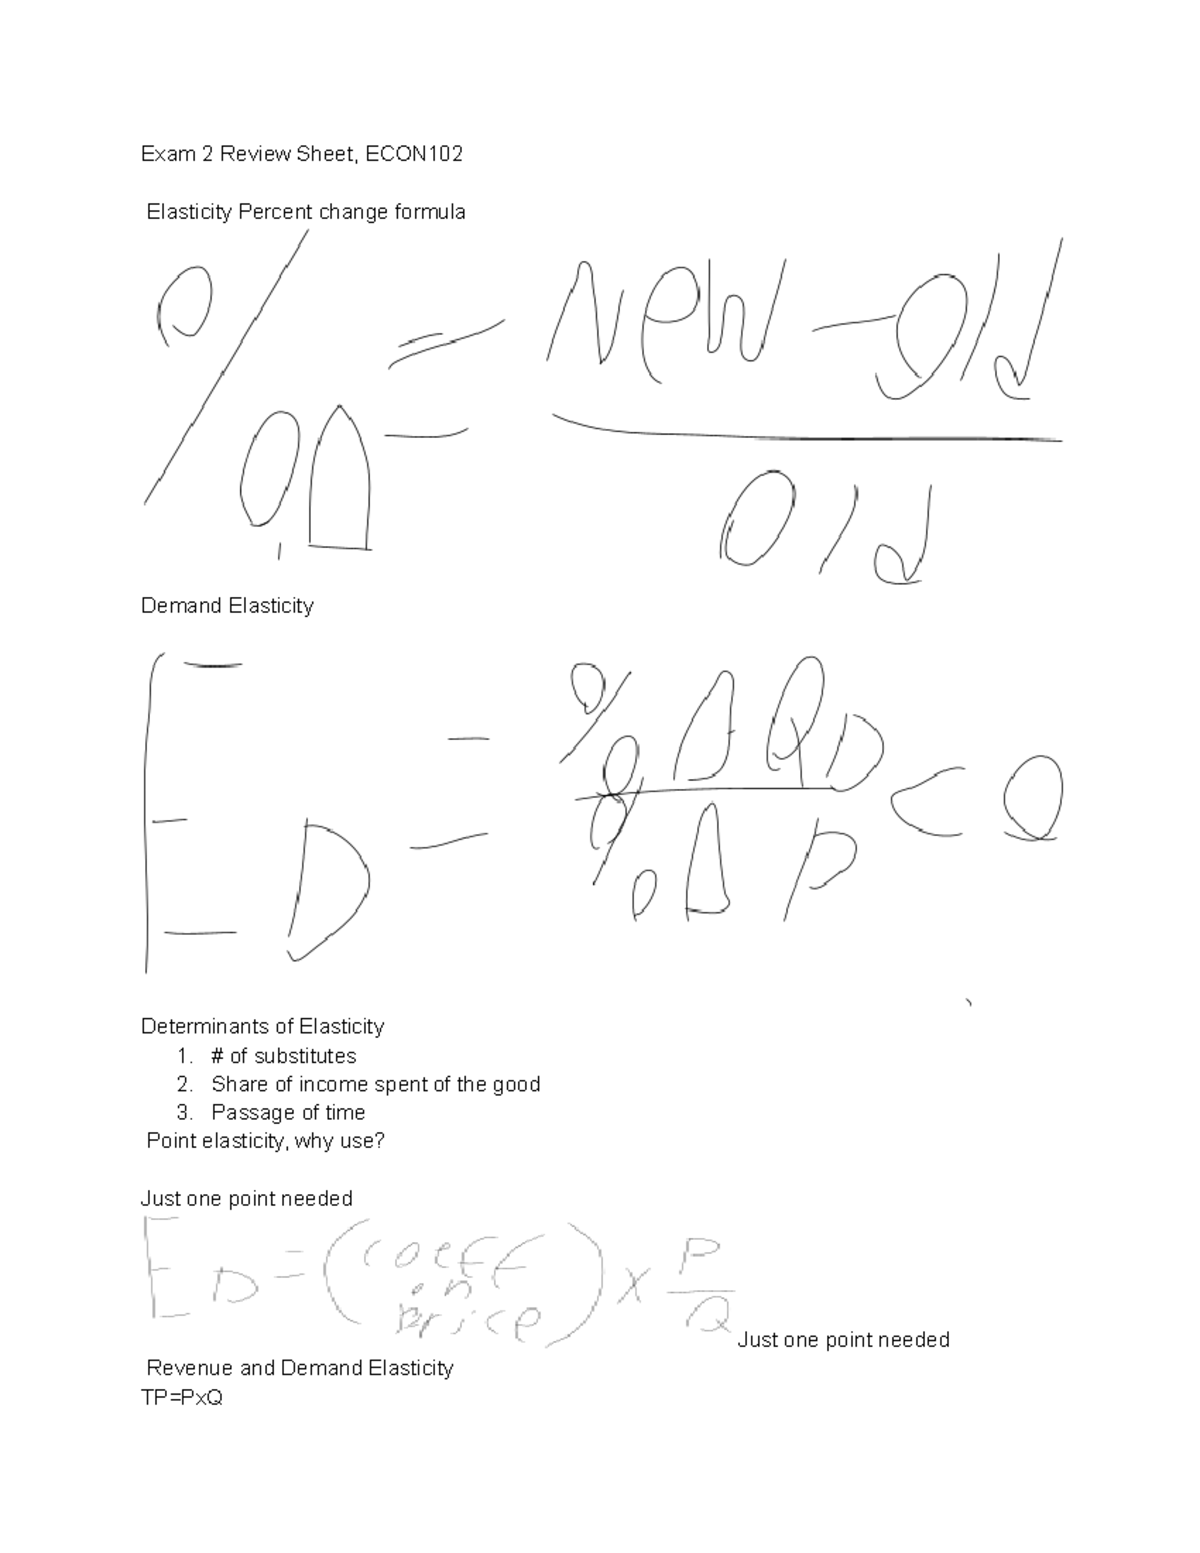 Exam 2 Review Sheet, ECON102
Elasticity Percent change formula
%Δ = New - Old
Old
Demand Elasticity
E D = %ΔQD < 0
%ΔP
Determinants of Elasticity
1. # of substitutes
2. Share of income spent of the good
3. Passage of time
Point elasticity, why use?
Just one point needed
E D = (coeff on price) x P
Q
Just one point needed
Revenue and Demand Elasticity
TP=PxQ